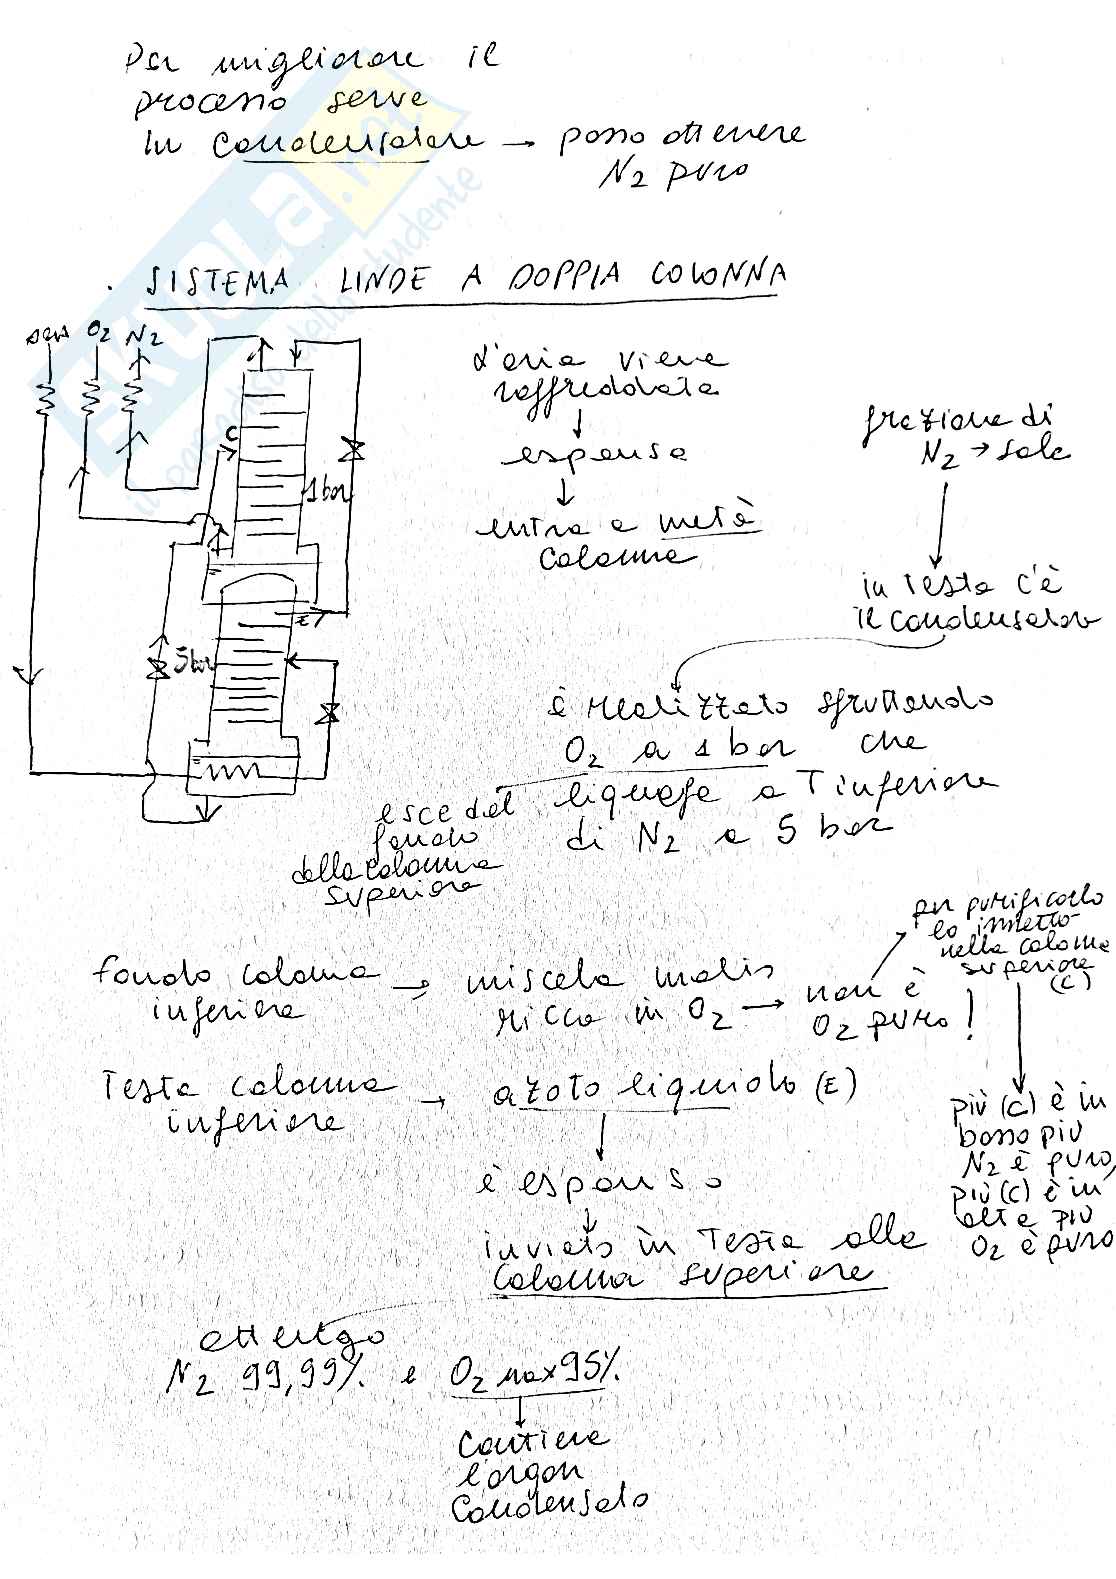 Per migliorare il
processo serve
un condensatore → posso ottenere
N2 puro
SKUOLA.net
il paradiso dello studente
. SISTEMA LINDE A DOPPIA COLONNA
aria O2 N2
C
1 bar
E
5 bar
L'aria viene
raffreddata
↓
espansa
↓
entra a metà
colonna
frazione di
N2 → sale
in testa c'è
il condensatore
è realizzato sfruttando
O2 a 1 bar che
liquefa a T inferiore
di N2 a 5 bar
esce dal
fondo
della colonna
superiore
fondo colonna
inferiore
→ miscela molto
ricca in O2 → non è
O2 puro!
per purificarlo
lo immetto
nella colonna
superiore
(C)
più (C) è in
basso più
N2 è puro,
più (C) è in
alto più
O2 è puro
Testa colonna
inferiore
→ azoto liquido (E)
↓
è espanso
↓
inviato in testa alla
colonna superiore
ottengo
N2 99,99% e O2 max 95%
↓
contiene
l'argon
condensato